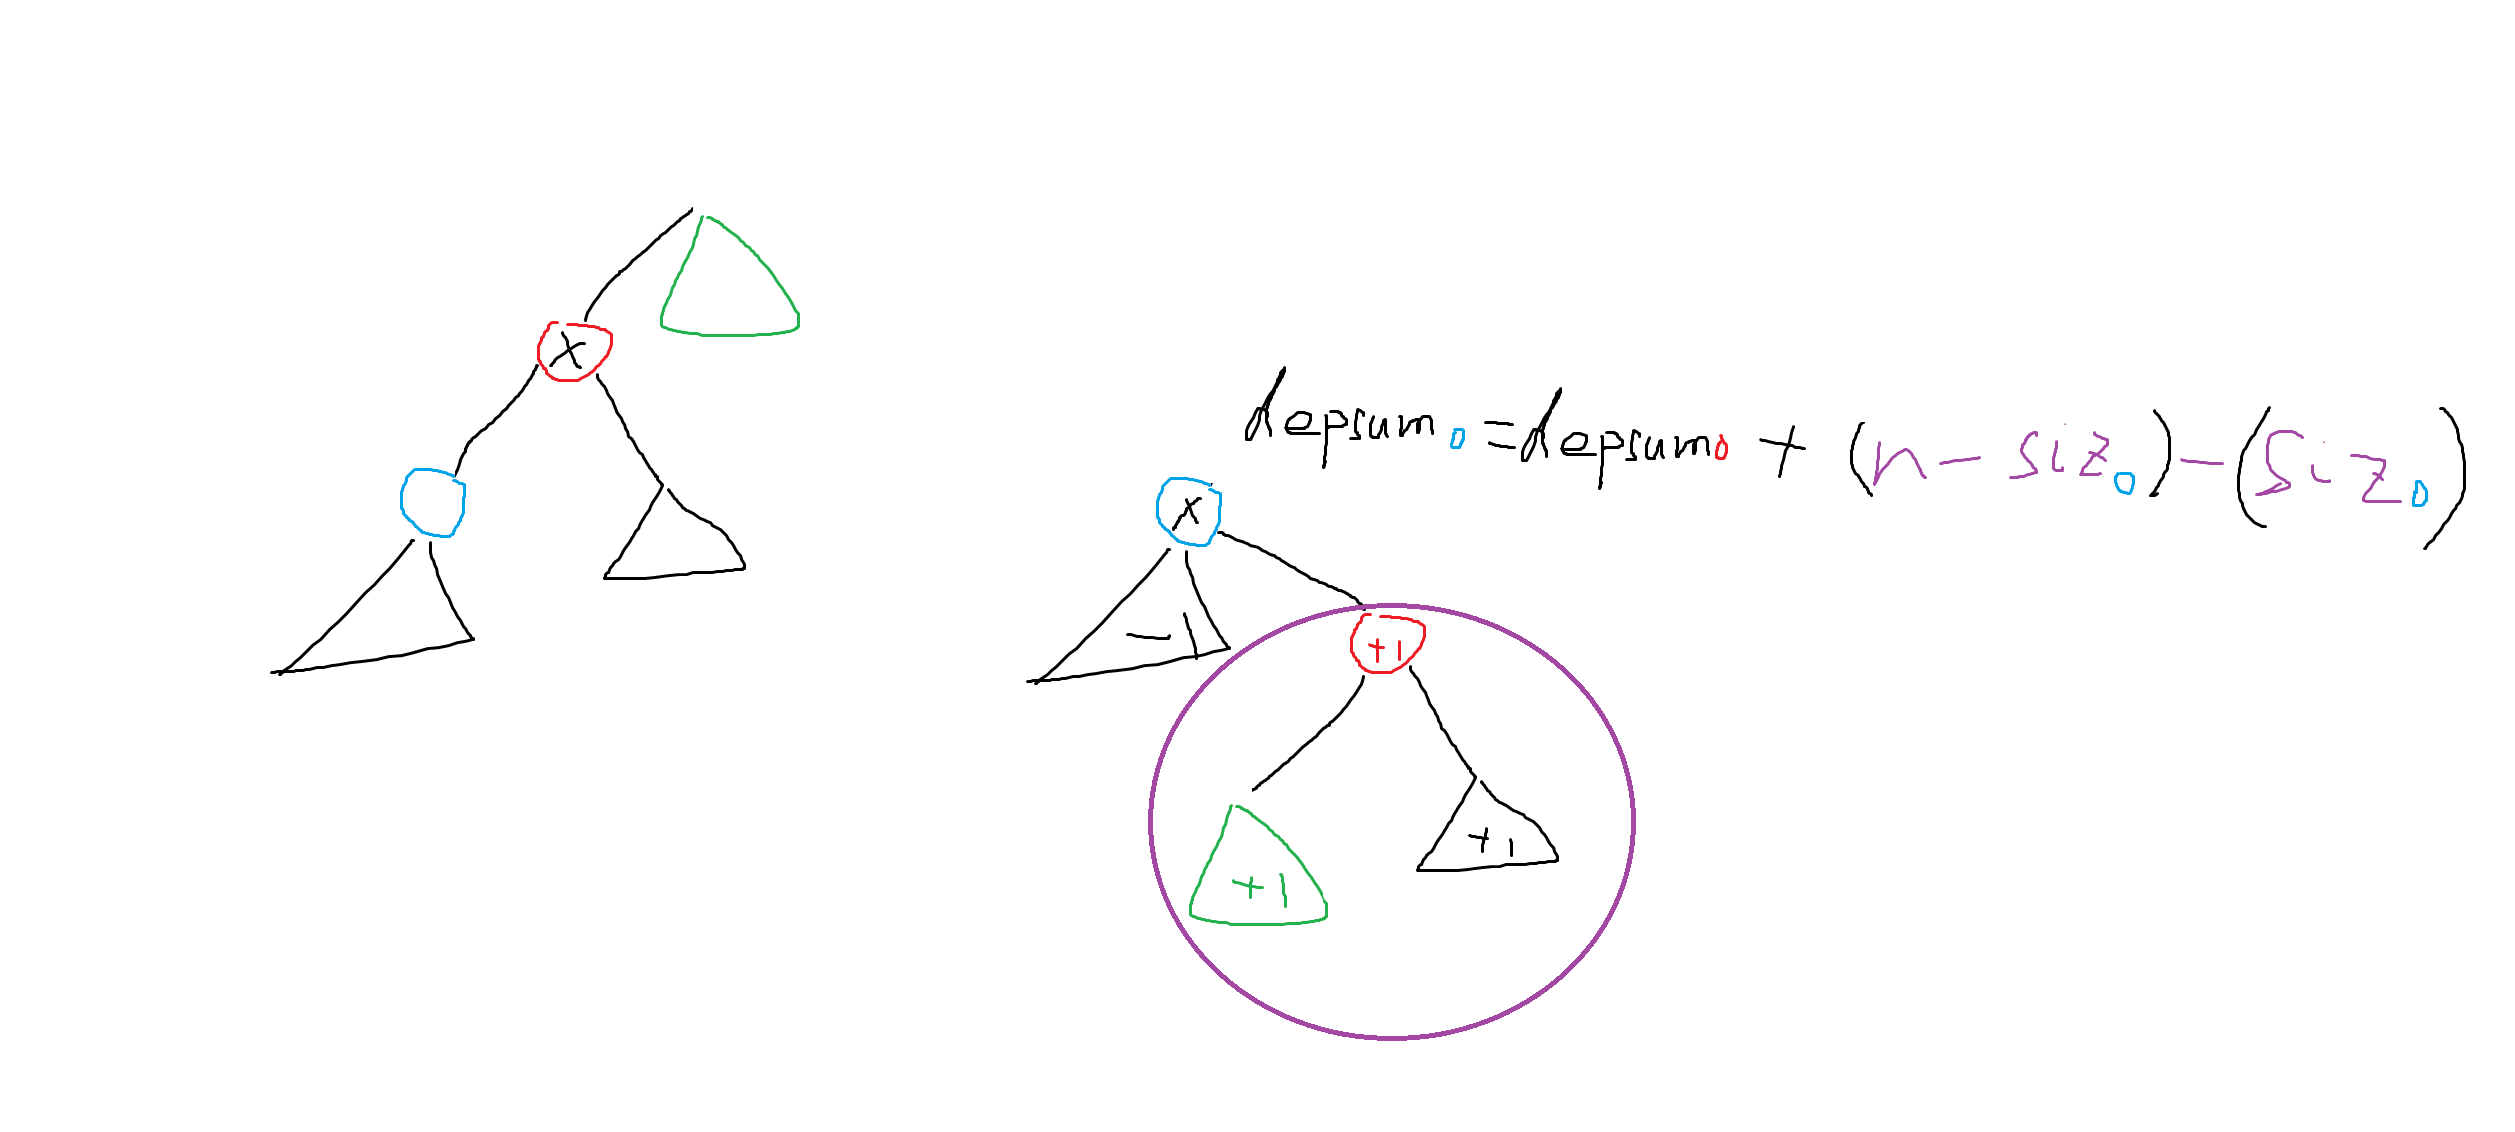 x
depsum0 = depsum0 + (n - siz0) - (siz0)
x
-1
+1
+1
+1